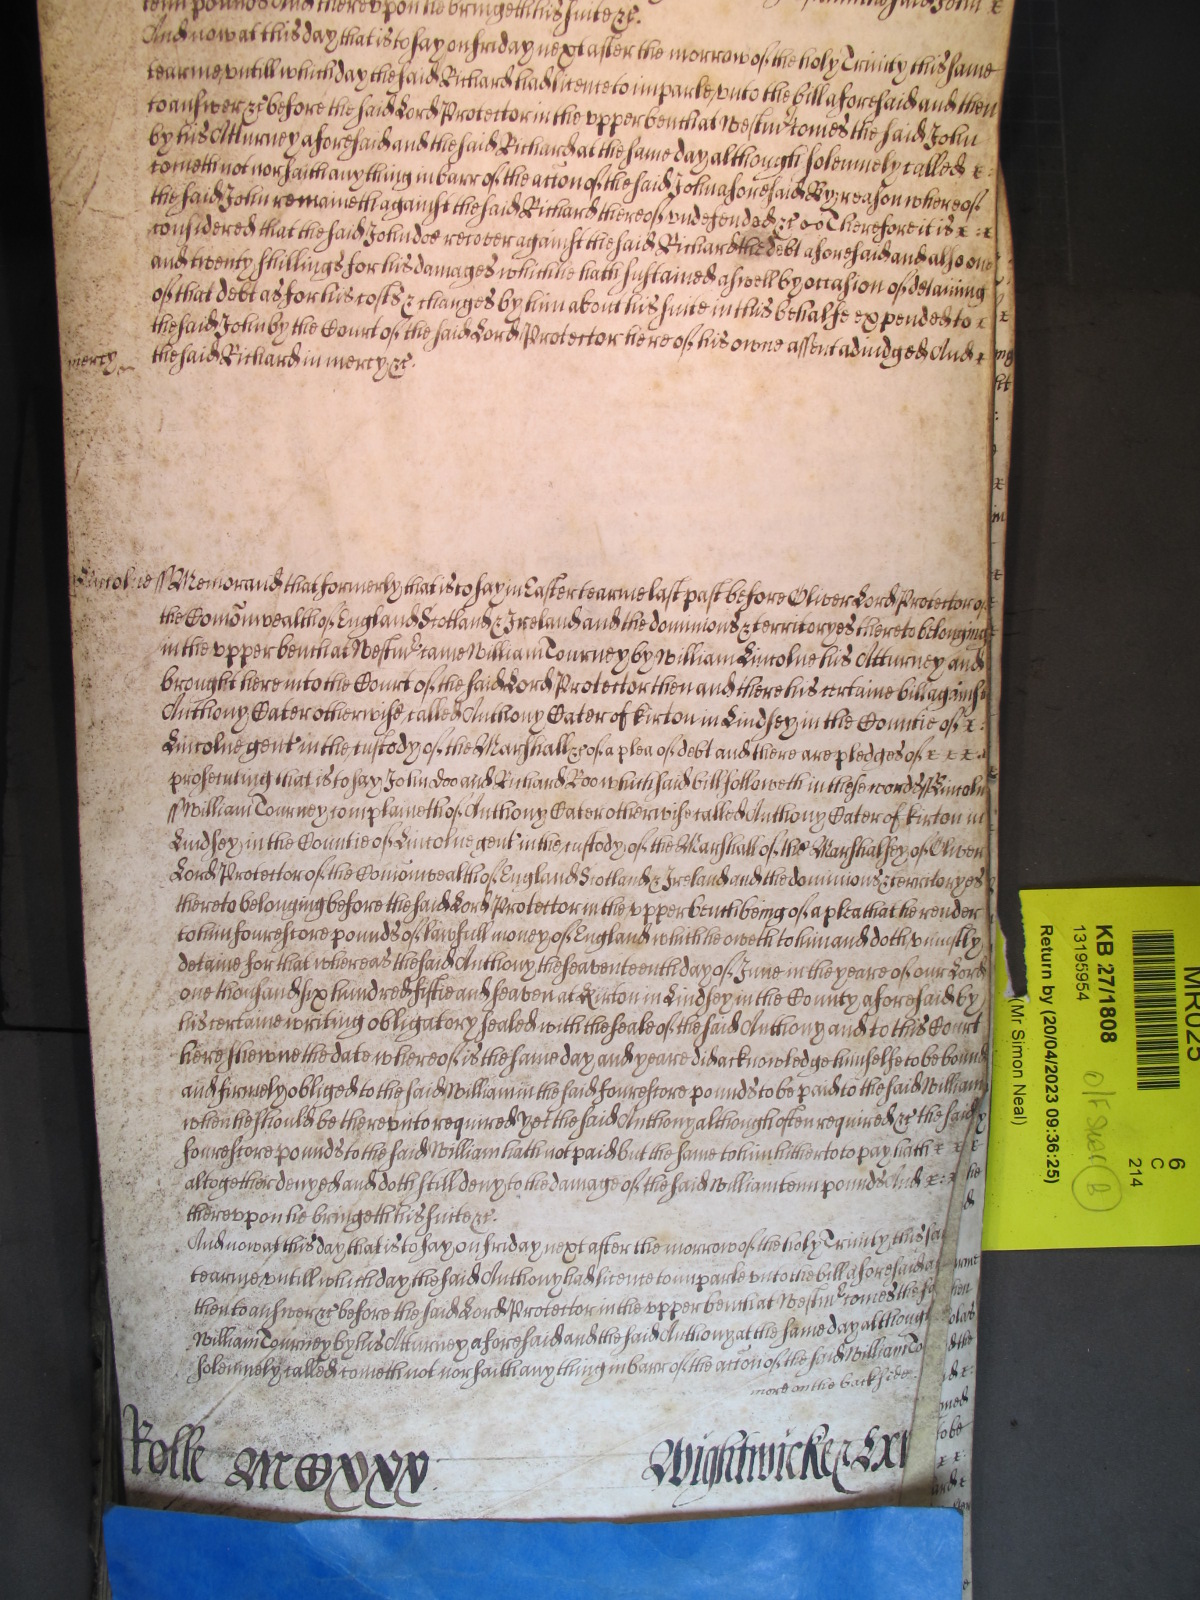 tenn pounds And thereupon he bringeth his suite &c.
And now at this day that is to say on friday next after the morrow of the holy Trinity this same
tearme untill which day the said Richard had licence to imparle unto the bill aforesaid and then
to answer &c before the said Lord Protector in the upper bench at Westmr comes the said John
by his Atturney aforesaid and the said Richard at the same day although solemnely called
cometh not nor saith any thing in barr of the accon of the said John aforesaid By reason whereof
the said John remaineth against the said Richard thereof undefended &c Therefore it is
considered that the said John doe recover against the said Richard the debt aforesaid and also one
and twenty shillings for his damages which he hath susteined aswell by occasion of detaining
of that debt as for his costs & charges by him about his suite in this behalfe expended to
the said John by the Court of the said Lord Protector here of his owne assent adiudged And
mercy the said Richard in mercy &c.
Lincolne ss Memorand that formerly that is to say in Easter tearme last past before Oliver Lord Protector of
the Comonwealth of England Scotland & Ireland and the dominions & territoryes thereto belonging
in the upper bench at Westmr came William Tourney by William Lincolne his Atturney and
brought here into the Court of the said Lord Protector then and there his certaine bill against
Anthony Eater otherwise called Anthony Eater of Kirton in Lindsey in the Countie of
Lincolne gent in the custody of the Marshall &c of a plea of debt and there are pledges of
prosecuting that is to say John Doo and Richard Roo which said bill followeth in these words ss Lincoln
ss William Tourney complaineth of Anthony Eater otherwise called Anthony Eater of Kirton in
Lindsey in the Countie of Lincolne gent in the custody of the Marshall of the Marshalsey of Oliver
Lord Protector of the Comonwealth of England Scotland & Ireland and the dominions & territoryes
thereto belonging before the said Lord Protector in the upper bench being of a plea that he render
to him fourescore pounds of lawfull money of England which he oweth to him and doth uniustly
detaine for that whereas the said Anthony the seaventeenth day of June in the yeare of our Lord
one thousand six hundred fiftie and seaven at Kirton in Lindsey in the County aforesaid by
his certaine writing obligatory sealed with the seale of the said Anthony and to this Court
here shewne the date whereof is the same day and yeare did acknowledge himselfe to be bound
and firmely obliged to the said William in the said fourescore pounds to be paid to the said William
when he should be thereunto required yet the said Anthony although often required &c the said
fourescore pounds to the said William hath not paid but the same to him hitherto to pay hath
altogether denyed and doth still deny to the damage of the said William tenn pounds And
thereupon he bringeth his suite &c.
And now at this day that is to say on friday next after the morrow of the holy Trinity this
tearme untill which day the said Anthony had licence to imparle unto the bill aforesaid
then to answer &c before the said Lord Protector in the upper bench at Westmr comes the
William Tourney by his Atturney aforesaid and the said Anthony at the same day although
solemnely called cometh not nor saith any thing in barr of the accon of the said William To
more on the backside
Rolle MDXXXV
Wightwicke
MR025
6
C
214
KB 27/1808
13195954
Return by (20/04/2023 09:36:25)
(Mr Simon Neal)
B